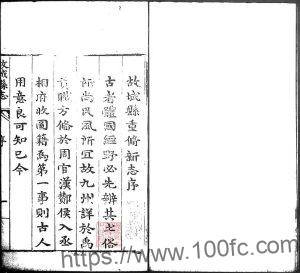 故城縣重修新志序
古者體國經野必先辨其土俗
所尚民風所宜故九州詳於禹
貢職方俻於周官漢酇侯入丞
相府收圖籍爲第一事則古人
用意良可知已今
故城縣志
序
https://www.100fc.com